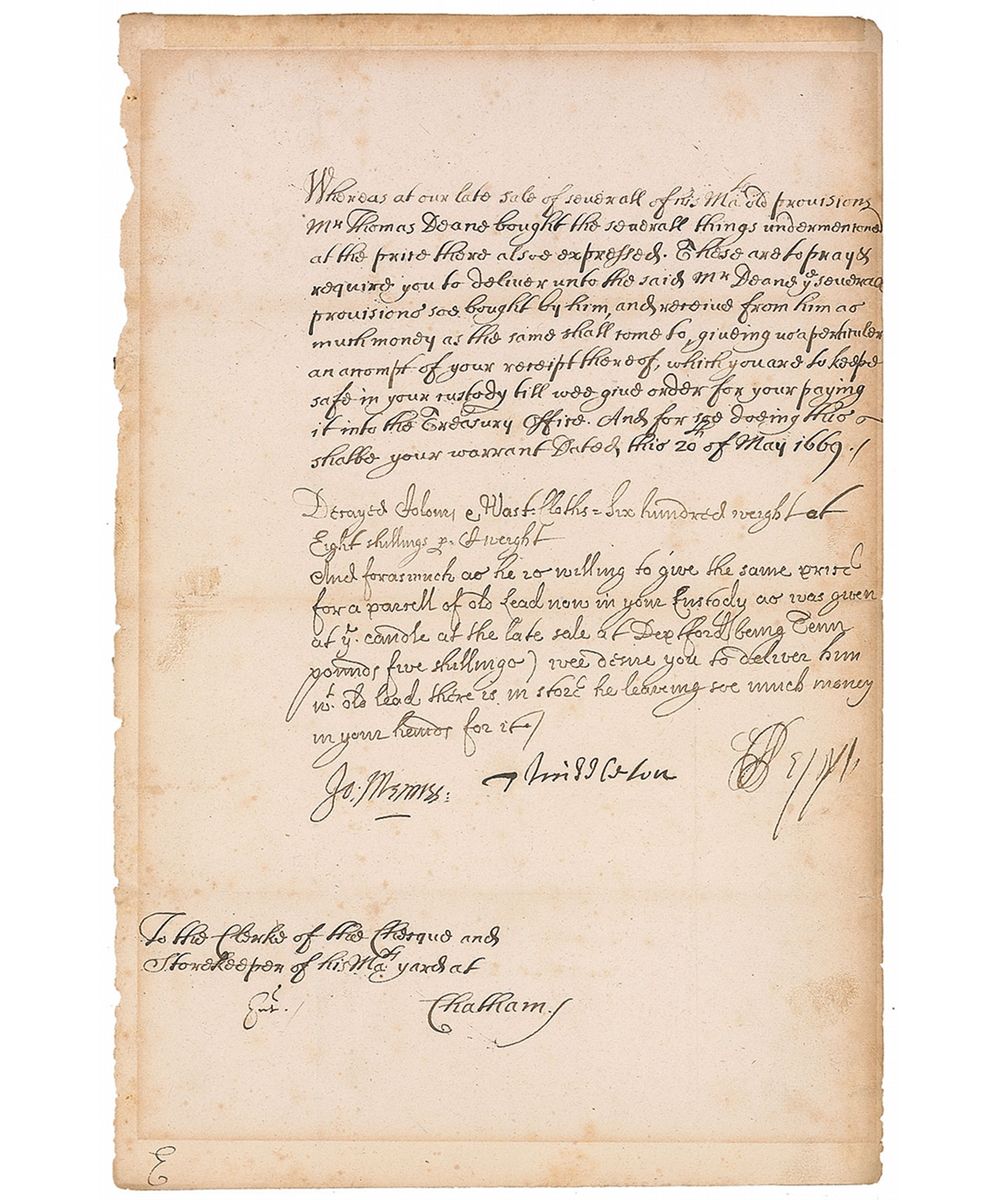 Whereas at our late sale of severall of his Ma.ts old provisions
Mr Thomas Deane bought the severall things undermentioned
at the price there alsoe expressed. These are to pray &
require you to deliver unto the said Mr Deane ye severall
provisions soe bought by him, and receive from him as
much money as the same shall come to, giveing us a perticuler
an accompt of your receipt thereof, which you are to keepe
safe in your custody till wee give order for your paying
it into the Treasury Office. And for soe doeing this
shalbe your warrant Dated this 20th of May 1669./
Decayed Colours & Wast Cloths = Six hundred weight at
Eight shillings p. C weight
And forasmuch as he is willing to give the same price
for a parcell of old Lead now in your Custody as was given
at ye. candle at the late sale at Deptford (being Tenn
pounds five shillings) wee desire you to deliver him
wt. old lead there is in store he leaving soe much money
in your hands for it/
Jo: Mennes:
T Middleton
SPepys.
To the Clerke of the Cheque and
Storekeeper of his Ma.ts yard at
Chatham./
E